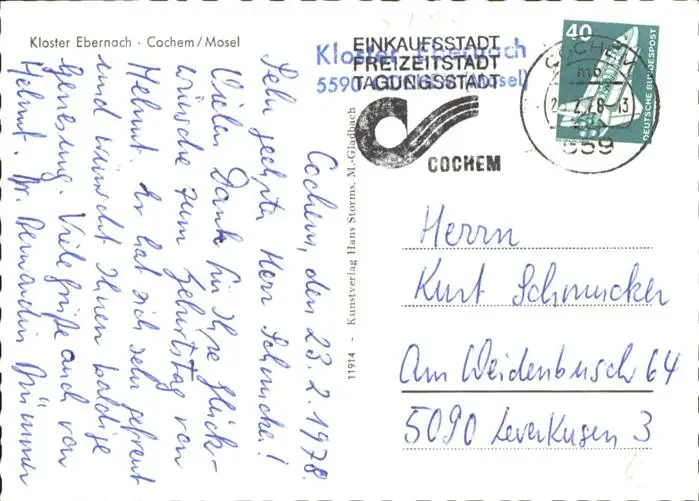 Kloster Ebernach · Cochem/Mosel
Kloster Ebernach
5590 Cochem (Mosel)
EINKAUFSSTADT
FREIZEITSTADT
TAGUNGSSTADT
COCHEM
COCHEM
mb
2.78 - 13
559
40
DEUTSCHE BUNDESPOST
11914 - Kunstverlag Hans Storms, M.-Gladbach
Cochem, den 23. 2. 1978.
Sehr geehrter Herr Schmucker!
Vielen Dank für Ihre Glück-
wünsche zum Geburtstag von
Helmut. Er hat sich sehr gefreut
und wünscht Ihnen baldige
Genesung. Viele Grüße auch von
Helmut. Br. Bernardin Brünner
Herrn
Kurt Schmucker
Am Weidenbusch 64
5090 Leverkusen 3